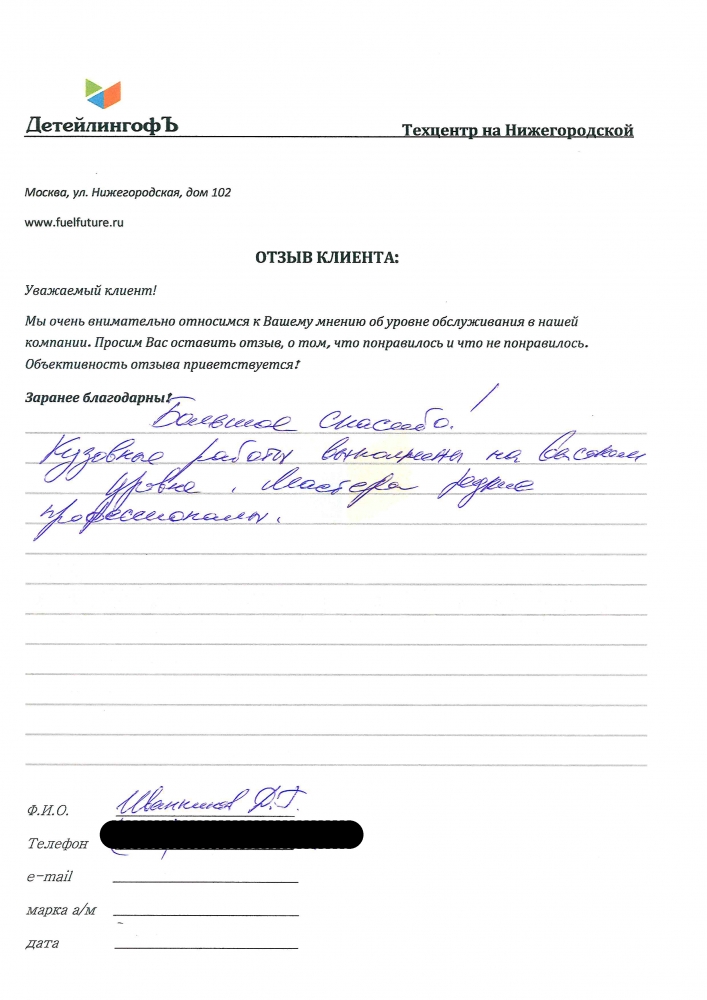 ДетейлингофЪ
Техцентр на Нижегородской
Москва, ул. Нижегородская, дом 102
www.fuelfuture.ru
ОТЗЫВ КЛИЕНТА:
Уважаемый клиент!
Мы очень внимательно относимся к Вашему мнению об уровне обслуживания в нашей
компании. Просим Вас оставить отзыв, о том, что понравилось и что не понравилось.
Объективность отзыва приветствуется!
Заранее благодарны!
Большое спасибо!
Кузовные работы выполнены на высоком
уровне. Мастера редкие
профессионалы.
Ф.И.О. Д.Г.
Телефон
e-mail
марка а/м
дата